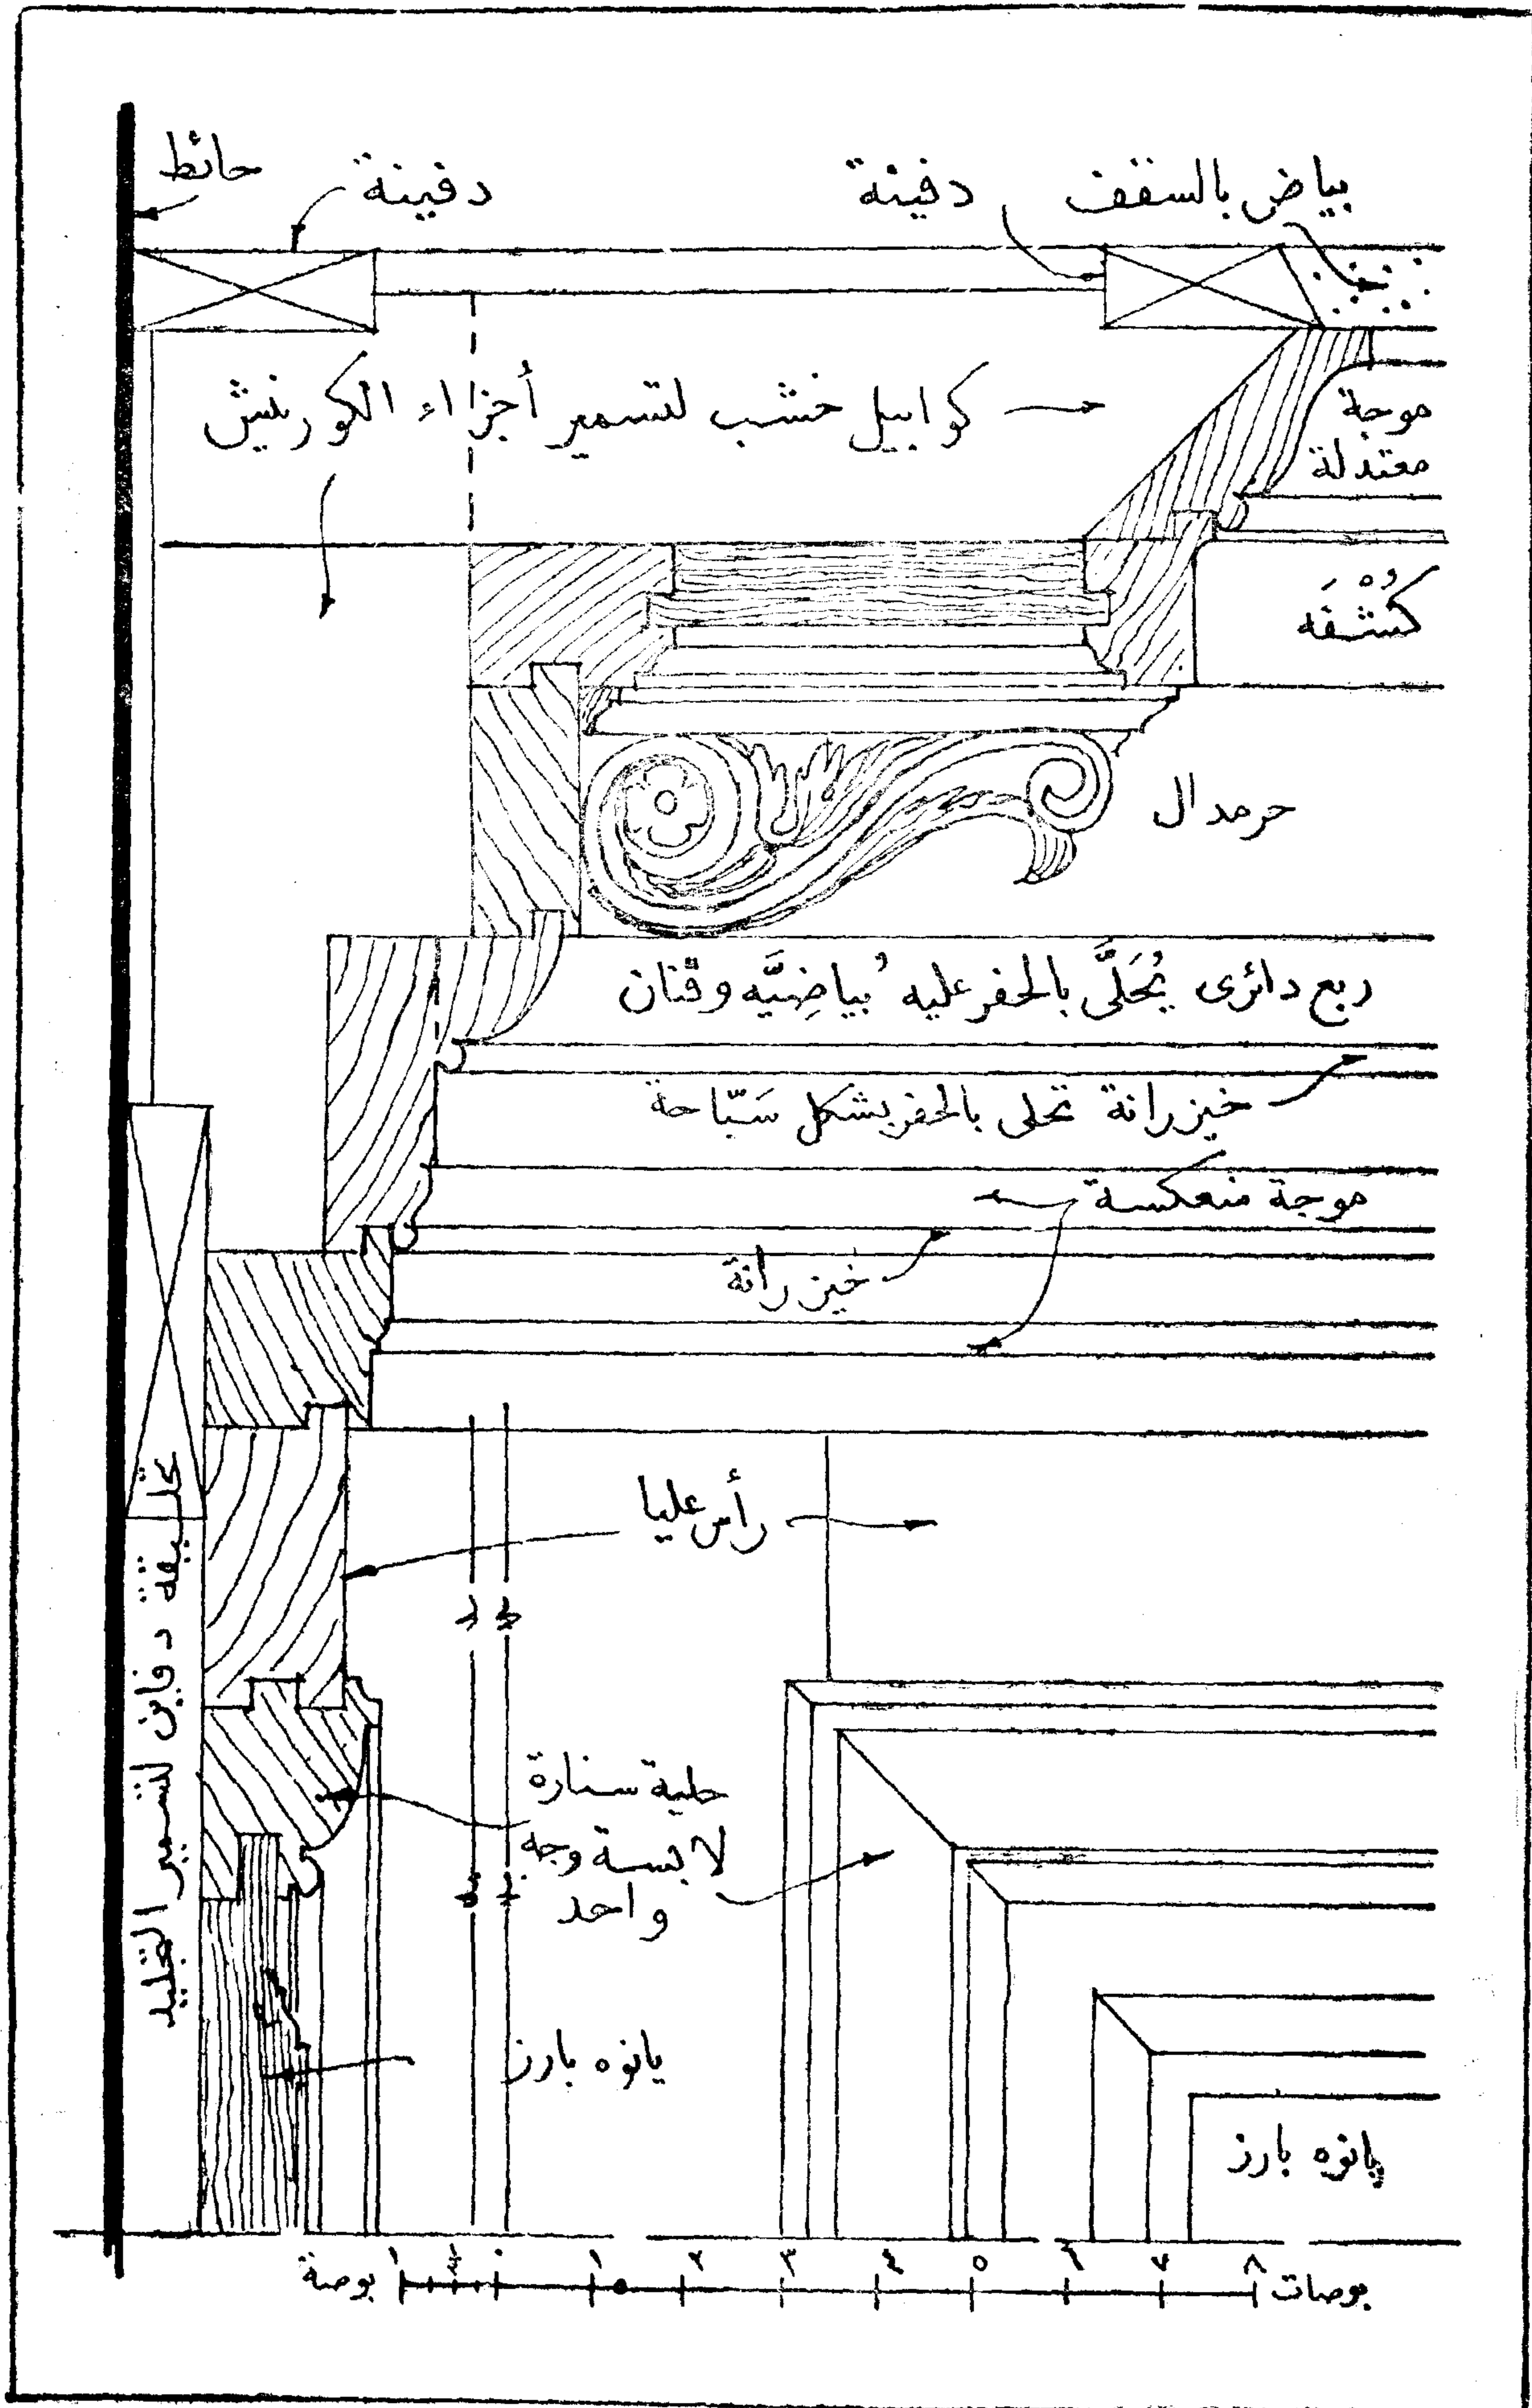 حائط
دفينة
دفينة
بياض بالسقف
كوابيل خشب لتسمير أجزاء الكورنيش
موجة
معتدلة
كُشْفَه
حرمدال
ربع دائرى يُحَلَّى بالحفر عليه بياضِيَّه وقنان
خيزرانة تحلى بالحفر بشكل سَبّاحة
موجة منعكسة
خيزرانة
رأس عليا
علـيقة دفاين لتسمير التجليد
حلية سنارة
لابسة وجه
واحد
پانوه بارز
پانوه بارز
بوصة ١ ½ ٠ ١ ٢ ٣ ٤ ٥ ٦ ٧ ٨ بوصات